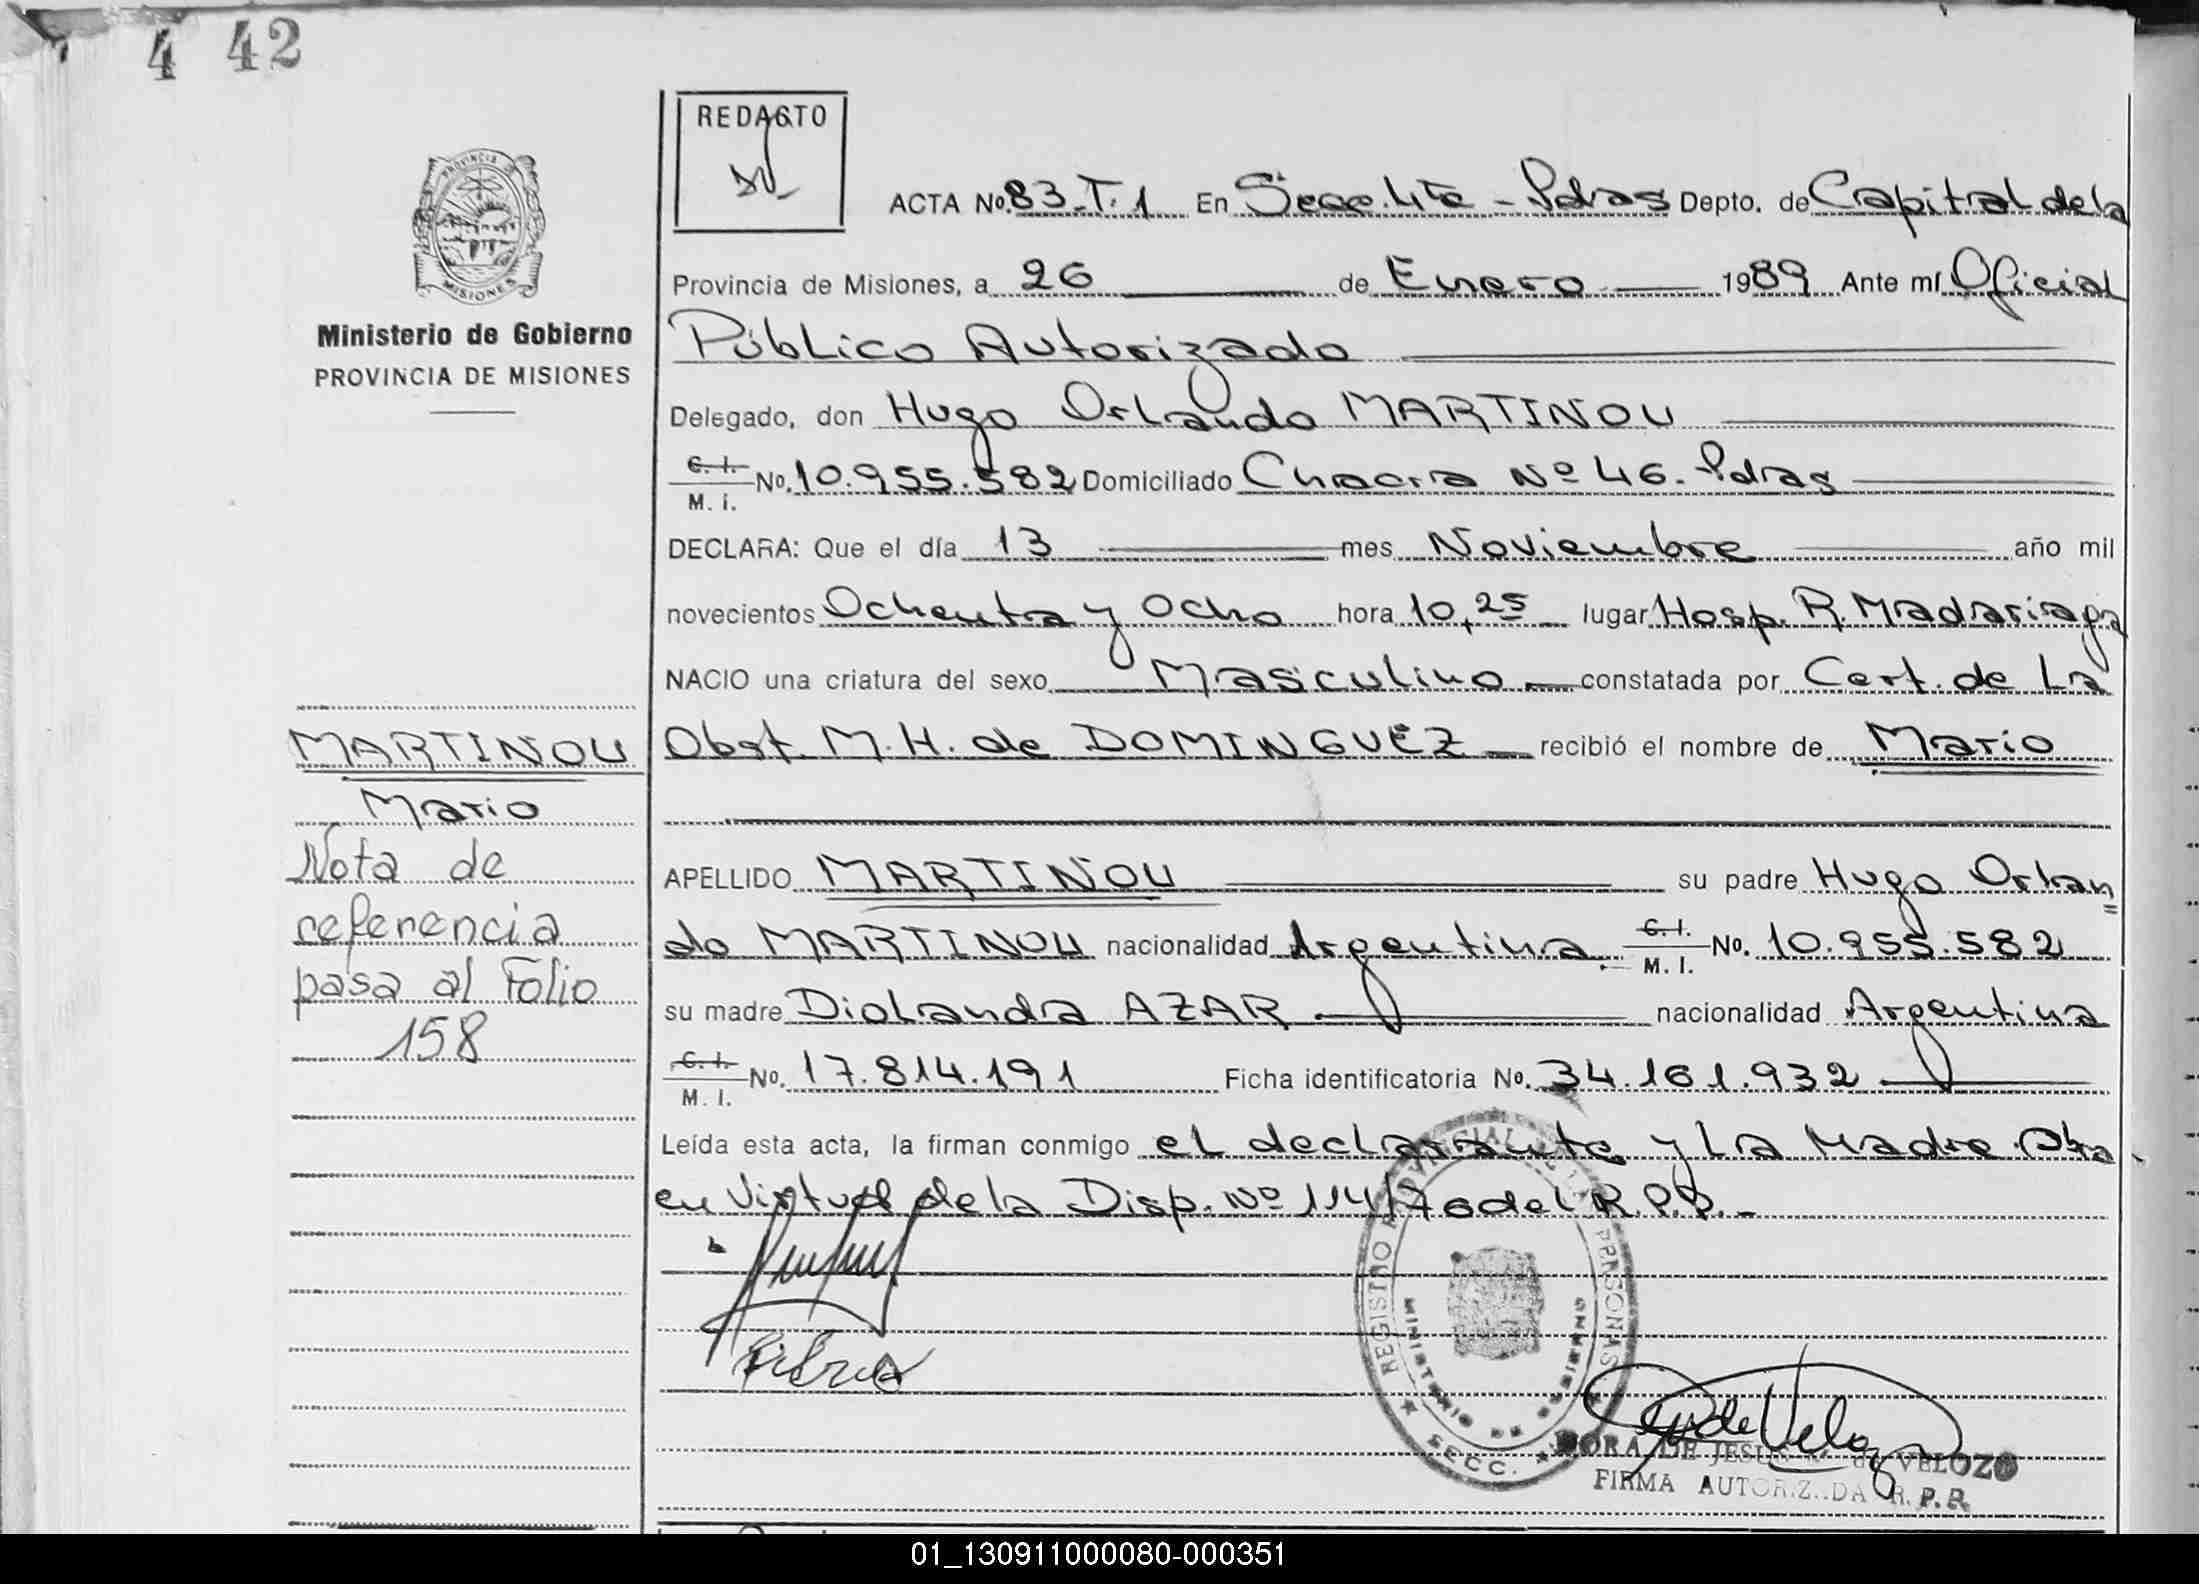 4 42
REDACTO
ACTA No. 83_T.1 En Secc. 4ta - Pdas Depto. de Capital de la
Provincia de Misiones, a 26 de Enero 1989 Ante mí Oficial
Público Autorizado
Delegado, don Hugo Orlando MARTINOU
C. I.
M. I. No. 10.955.582 Domiciliado Chacra Nº 46. Pdas
DECLARA: Que el día 13 mes Noviembre año mil
novecientos Ochenta y Ocho hora 10,25 lugar Hosp. R. Madariaga
NACIO una criatura del sexo Masculino constatada por Cert. de La
Obst. M. H. de DOMINGUEZ recibió el nombre de Mario
APELLIDO MARTINOU su padre Hugo Orlan
do MARTINOU nacionalidad Argentina C. I.
M. I. No. 10.955.582
su madre Diolanda AZAR nacionalidad Argentina
C. I.
M. I. No. 17.814.191 Ficha identificatoria No. 34.161.932
Leída esta acta, la firman conmigo el declarante y La Madre
en Virtud de la Disp. Nº 114/76 del R.P.P.
PROVINCIA DE
MISIONES
Ministerio de Gobierno
PROVINCIA DE MISIONES
MARTINOU
Mario
Nota de
referencia
pasa al Folio
158
REGISTRO PROVINCIAL DE LAS PERSONAS
MINISTERIO DE GOBIERNO
SECC.
DORA DE JESUS de VELOZO
FIRMA AUTORIZADA R.P.P.
01_130911000080-000351